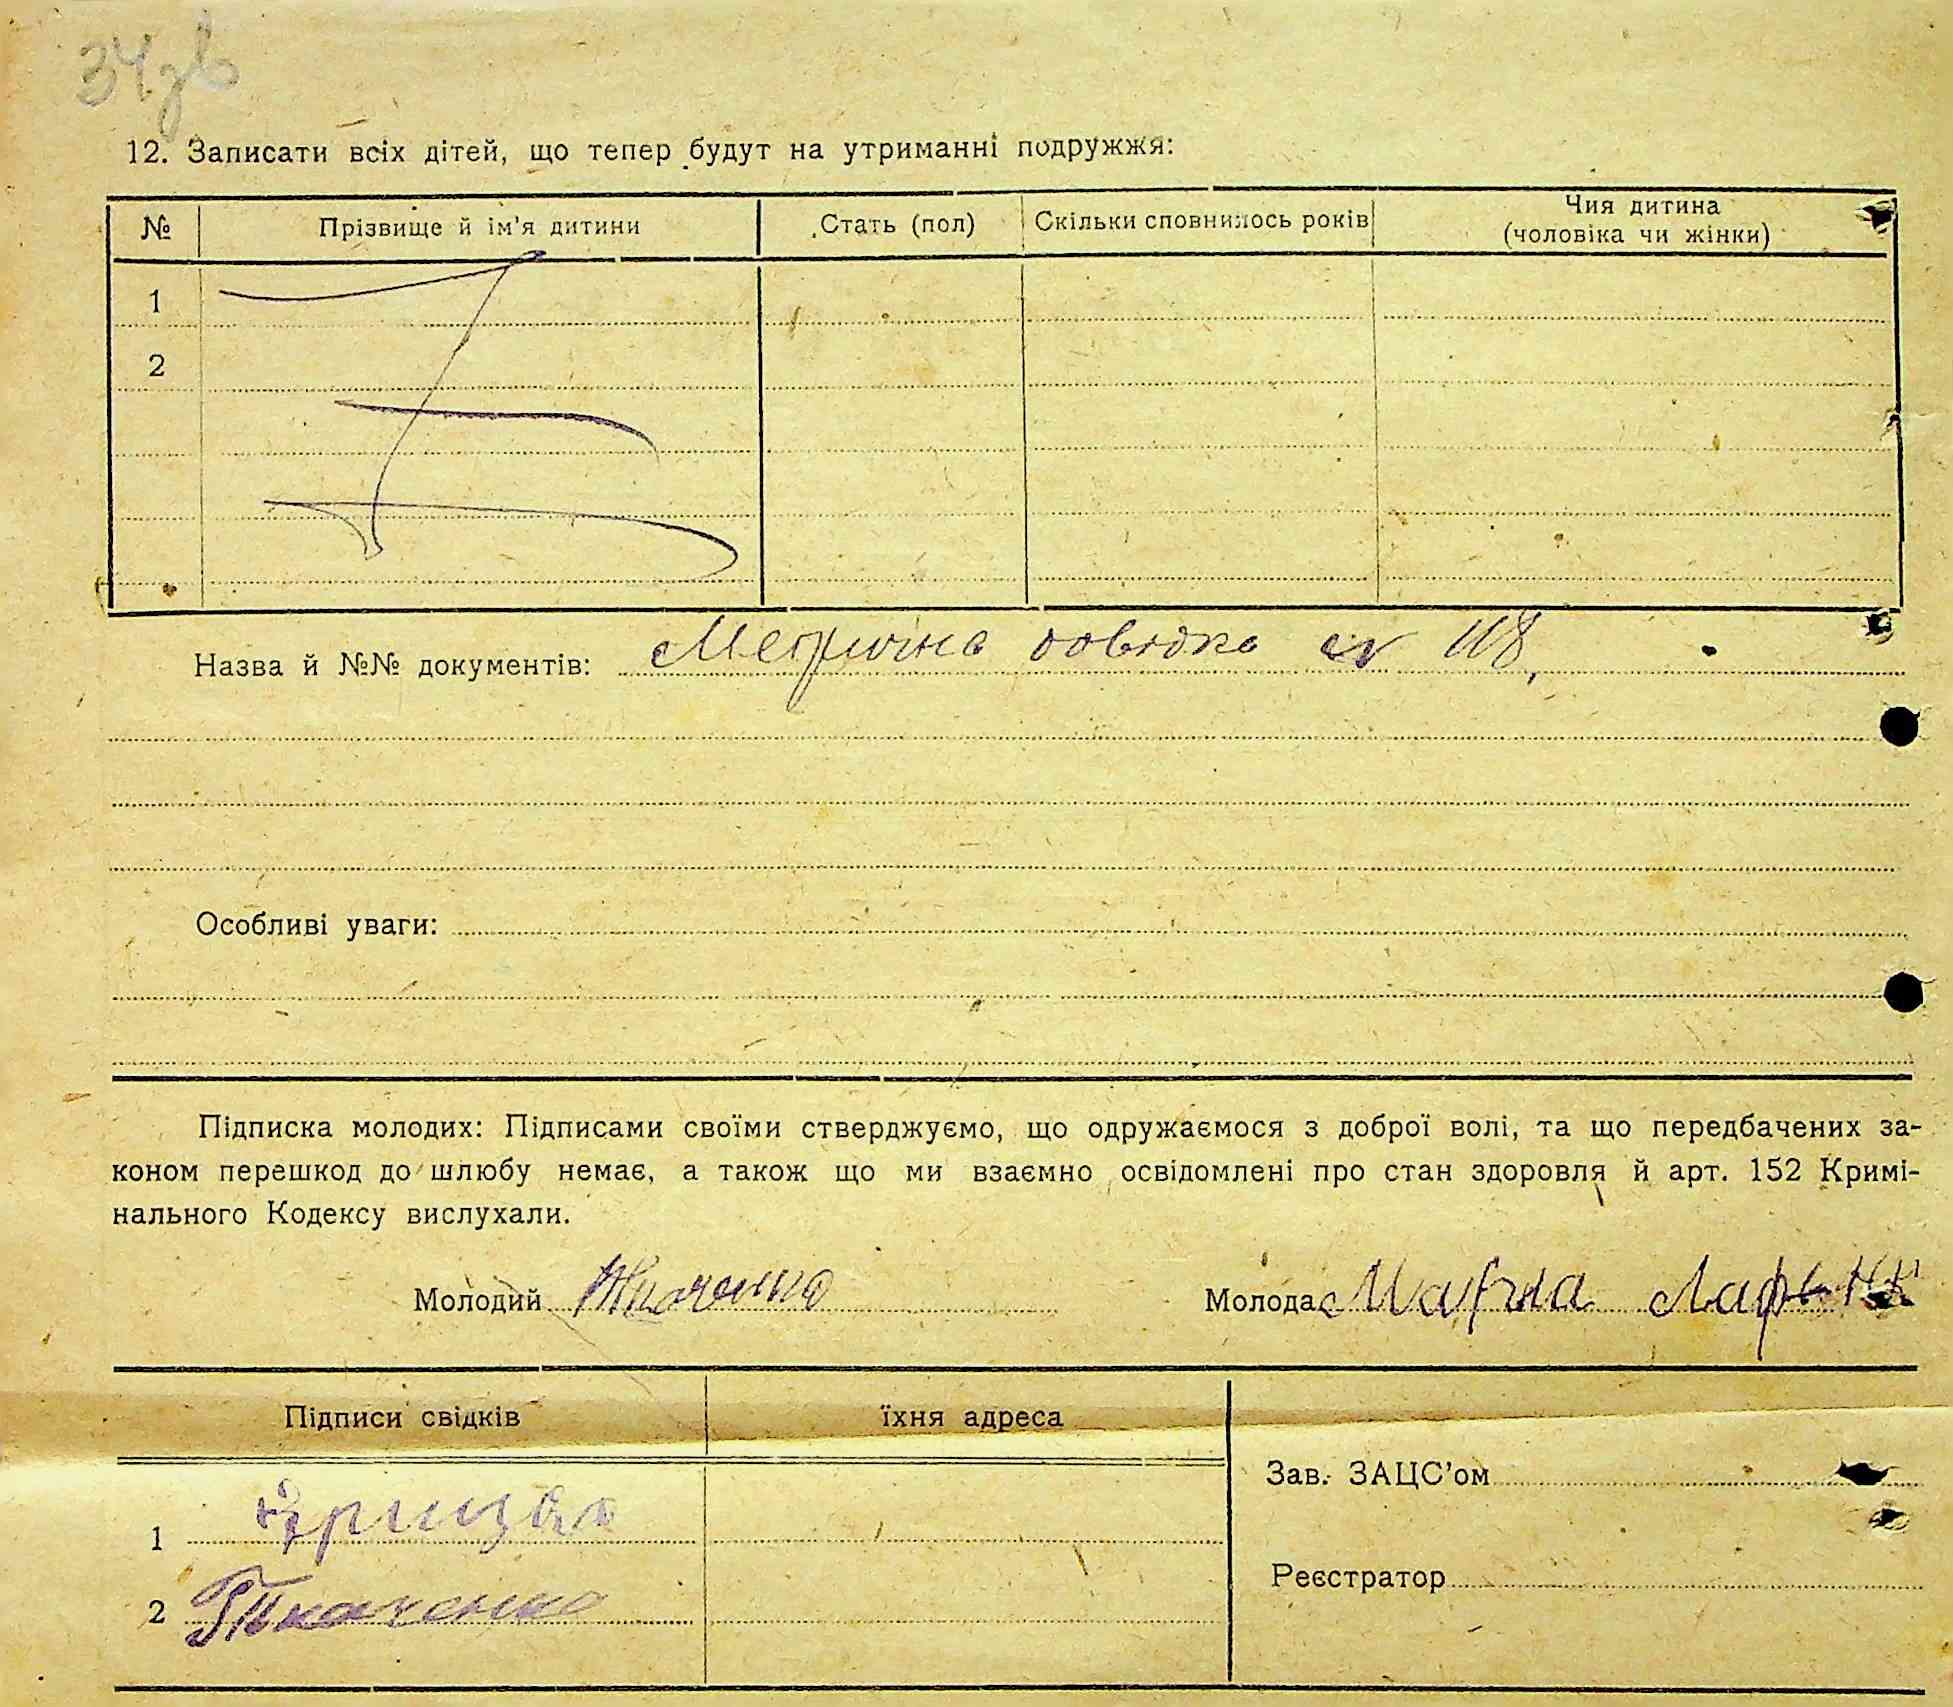 34зв
12. Записати всіх дітей, що тепер будут на утриманні подружжя:
№ Прізвище й ім'я дитини Стать (пол) Скільки сповнилось років Чия дитина (чоловіка чи жінки)
1
2
Назва й №№ документів: Метрична довідка № 118,
Особливі уваги:
Підписка молодих: Підписами своїми стверджуємо, що одружаємося з доброї волі, та що передбачених за-
коном перешкод до шлюбу немає, а також що ми взаємно освідомлені про стан здоровля й арт. 152 Кримі-
нального Кодексу вислухали.
Молодий Ткаченко Молода
Підписи свідків їхня адреса
Зав. ЗАЦС'ом
1
Реєстратор
2 Ткаченко